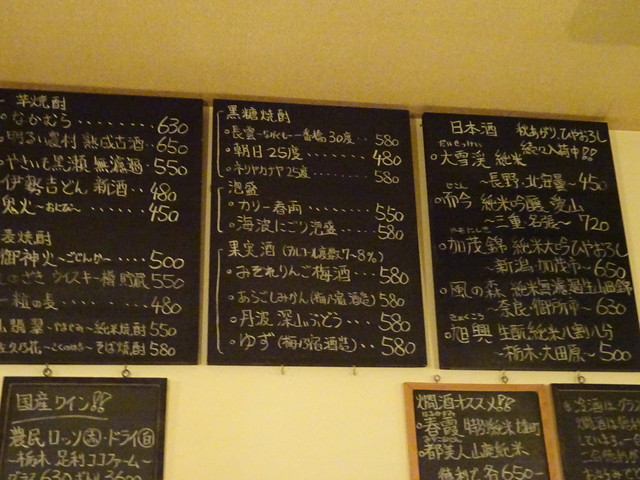 芋焼酎
なかむら・・・・・・・・630
明るい農村 熟成古酒・・650
やきいも黒瀬 無濾過 550
伊勢吉どん 新酒・・480
鬼火〜おにび〜・・・・450
麦焼酎
御神火〜ごじんか〜・・・500
ウイスキー樽 貯蔵 550
一粒の麦・・・・・・480
翡翠 純米焼酎 550
佐久乃花 そば焼酎 580
黒糖焼酎
長雲 一番橋 30度・・580
朝日 25度・・・・・・480
25度・・・・580
泡盛
カリー春雨・・・・・550
海波にごり泡盛・・・580
果実酒 (アルコール度数7〜8%)
みぞれりんご梅酒・・・580
あらごしみかん(梅乃宿酒造)・580
丹波 深山ぶどう・・・580
ゆず(梅乃宿酒造)・・580
日本酒 秋あがり、ひやおろし
続々入荷中!!
大雪渓 純米
〜長野・北安曇〜450
じこん
而今 純米吟醸 愛山
〜三重・名張〜720
加茂錦 純米大吟ひやおろし
〜新潟・加茂市〜650
風の森 純米無濾過生山田錦
〜奈良・御所市〜630
旭興 生酛純米八割八分
〜栃木・大田原〜500
国産ワイン!!
農民ロッソ(赤)・ドライ(白)
〜栃木 足利ココファーム〜
グラス630 ボトル3600
燗酒オススメ!!
春霞 特別純米
都美人 山廃純米
各650ー